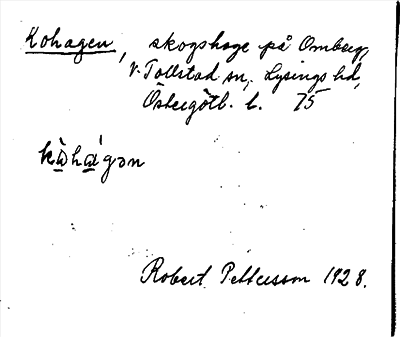 Kohagen, skogshage på Omberg,
V. Tollstad sn, Lysings hd,
Östergötl. l. 75
kȯ̀hágən
Robert Pettersson 1928.